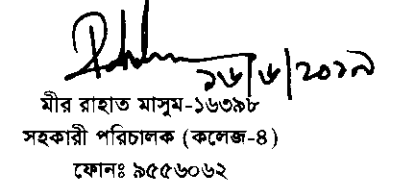 ১৬/৬/২০১৯
মীর রাহাত মাসুম-১৬৩৯৮
সহকারী পরিচালক (কলেজ-৪)
ফোনঃ ৯৫৫৬০৬২